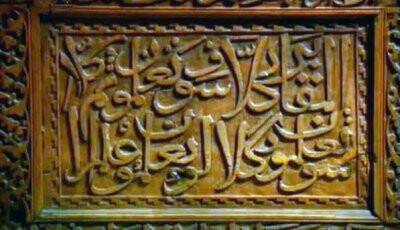 المقابر كلا سوف تعلمون ثم كلا
سوف تعلمون كلا لو تعلمون علم